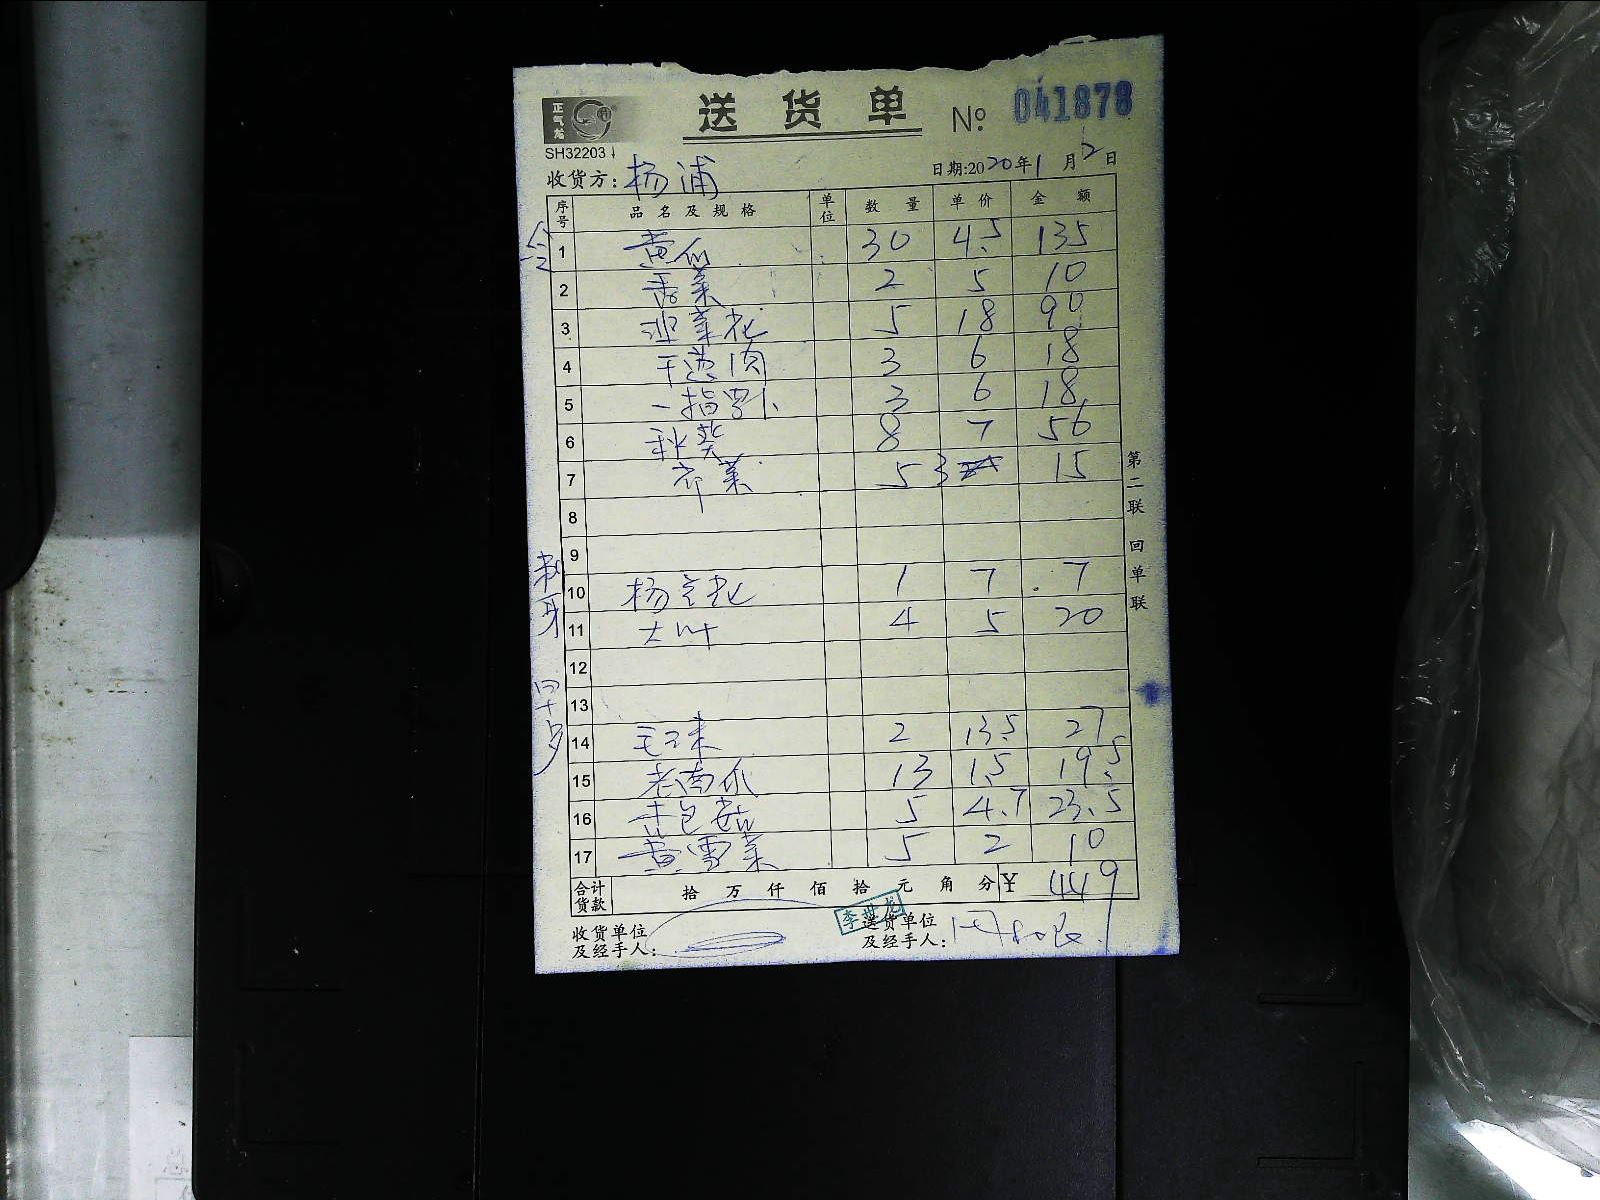 正气龙
SH32203
送货单 № 041878
收货方: 杨浦 日期:2020年1月2日
序号 品名及规格 单位 数量 单价 金额
1 黄瓜 30 4.5 135
2 香菜 2 5 10
3 冰菜花 5 18 90
4 干葱肉 3 6 18
5 一指罗卜 3 6 18
6 秋葵 8 7 56
7 芹菜 5 3 15
8
9
10 杨 花 1 7 7
11 大叶 4 5 20
12
13
14 毛 2 13.5 27
15 老南瓜 13 1.5 19.5
16 杏包菇 5 4.7 23.5
17 黄雪菜 5 2 10
合计货款 拾万仟佰拾元角分 ¥ 449
收货单位及经手人: 送货单位及经手人:
第二联 回单联